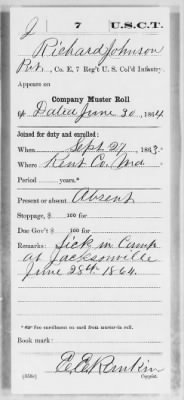 J 7 U.S.C.T.
Richard Johnson
Pvt., Co. E, 7 Reg't U. S. Col'd Infantry.
Appears on
Company Muster Roll
of Dated June 30, 1864
Joined for duty and enrolled:
When Sept 27, 1863.
Where Kent Co. Md
Period years.*
Present or absent, Absent
Stoppage, $ 100 for
Due Gov't $ 100 for
Remarks: Sick in Camp
at Jacksonville
June 28th 1864.
*See enrollment on card from muster-in roll.
Book mark:
(358c) Copyist.